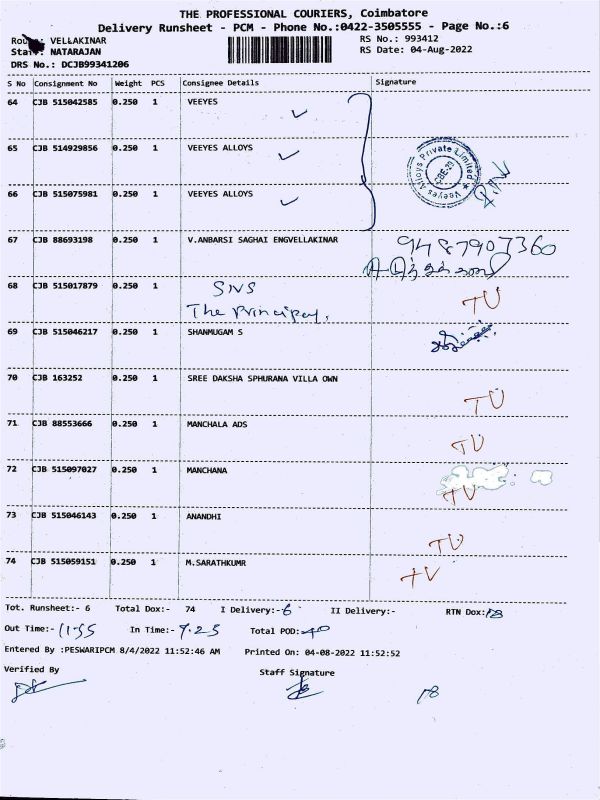 THE PROFESSIONAL COURIERS, Coimbatore
Delivery Runsheet - PCM - Phone No.:0422-3505555 - Page No.:6
VELLAKINAR
RS No.: 993412
NATARAJAN
RS Date: 04-Aug-2022
DRS No.: DCJB99341206
S No Consignment No Weight PCS Consignee Details Signature
64 CJB 515042585 0.250 1 VEEYES
65 CJB 514929856 0.250 1 VEEYES ALLOYS
Veeyes Alloys Private Limited
CBE-29
66 CJB 515075981 0.250 1 VEEYES ALLOYS
67 CJB 88693198 0.250 1 V.ANBARSI SAGHAI ENGVELLAKINAR 9487907360
68 CJB 515017879 0.250 1 SNS
The Principal, TU
69 CJB 515046217 0.250 1 SHANMUGAM S
70 CJB 163252 0.250 1 SREE DAKSHA SPHURANA VILLA OWN TU
71 CJB 88553666 0.250 1 MANCHALA ADS TU
72 CJB 515097027 0.250 1 MANCHANA TU
73 CJB 515046143 0.250 1 ANANDHI TU
74 CJB 515059151 0.250 1 M.SARATHKUMR TU
Tot. Runsheet:- 6 Total Dox:- 74 I Delivery:- 6 II Delivery:- RTN Dox:
Out Time:- 11.55 In Time:- 9.25 Total POD:- 40
Entered By :PESWARIPCM 8/4/2022 11:52:46 AM Printed On: 04-08-2022 11:52:52
Verified By Staff Signature
18